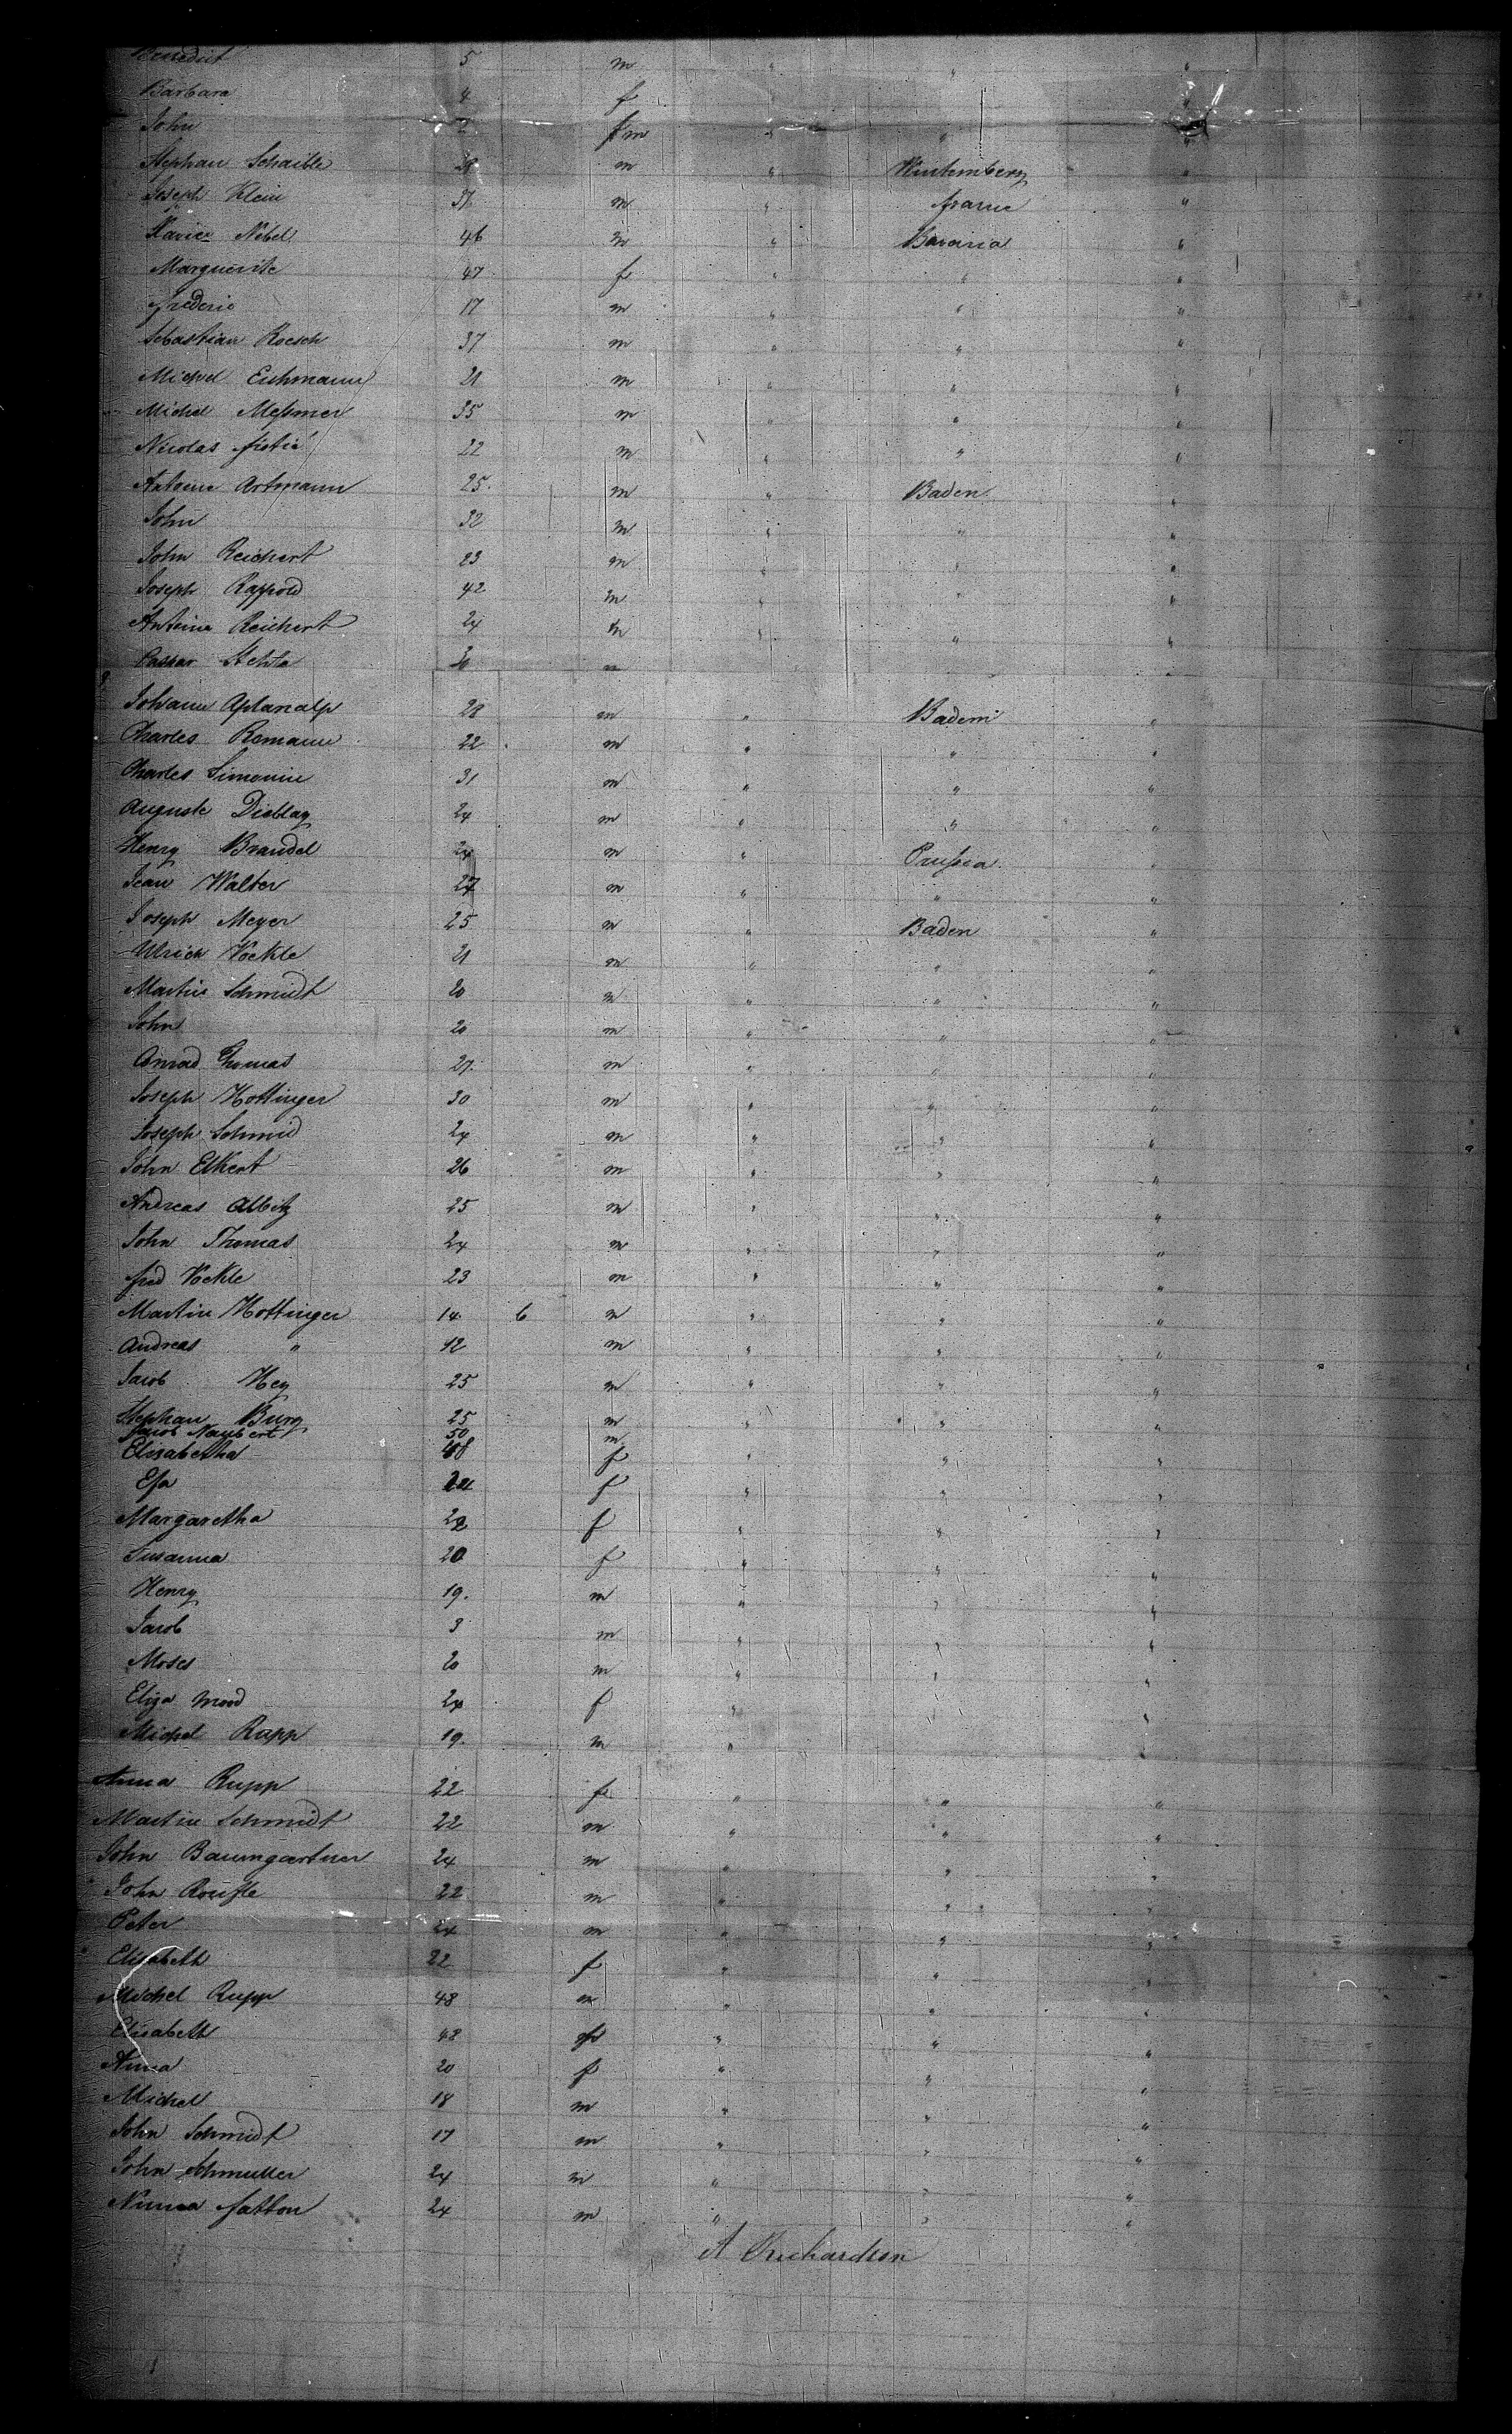 Benedict 5 m " " "
Barbara 4 f "
John 2 fm " " "
Stephan Schaible 29 m " Wurtemberg "
Joseph Klein 37 m " france "
Xavier Nebel 46 m " Bavaria "
Marguerite 47 f " " "
frederic 17 m " " "
Sebastian Roesch 37 m " " "
Michel Eichmann 21 m " " "
Michel Meßmer 35 m " " "
Nicolas 22 m " " "
Antoine Artmann 25. m " Baden "
John 32 m " " "
John Reichert 23 m " " "
Joseph Rappold 42 m " " "
Antoine Reichert 24 m " " "
Caspar 30 m
Johann Aplanalp 28 m " Baden "
Charles Romann 22 m " " "
Charles Simonin 31 m " " "
Auguste 24 m " " "
Henry Brandel 24 m " Prußia "
Jean Walter 27 m " " "
Joseph Meyer 25 m " Baden "
Ulrich Vockle 21 m " " "
Martin Schmidt 20 m " " "
John 20 m " " "
Conrad Thomas 27. m " " "
Joseph Hottinger 30 m " " "
Joseph Schmid 24 m " " "
John Elkert 26 m " " "
Andreas Albitz 25 m " " "
John Thomas 24 m " " "
fred Vockle 23 m " " "
Martin Hottinger 14 6 m " " "
Andreas " 12 m " " "
Jacob Hey 25 m " " "
Stephan Burg 25 m " " "
Jacob Naubert 50 m
Elisabetha 48 f " " "
Efa 24 f " " "
Margaretha 22 f " " "
Susanna 20 f " " "
Henry 19. m " " "
Jacob 3 m " " "
Moses 20 m " " "
Eliza Mood 24 f " " "
Michel Rapp 19. m " "
Anna Rupp 22 f " " "
Martin Schmidt 22 m " " "
John Baumgartner 24 m " " "
John 22 m " " "
Peter 24 m " " "
Elisabeth 22 f " " "
Michel Rupp 48 m " " "
Elisabeth 48 f " " "
Anna 20 f " " "
Michel 18 m " " "
John Schmidt 17 m " " "
John Schmutter 24 m " " "
Numa fatton 24 m " " "
A Richardson